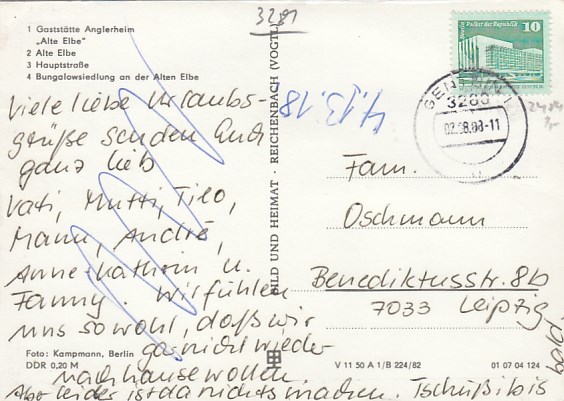 3281
1 Gaststätte Anglerheim
„Alte Elbe"
2 Alte Elbe
3 Hauptstraße
4 Bungalowsiedlung an der Alten Elbe
Viele liebe Urlaubs-
grüße senden Euch
ganz lieb
Vati, Mutti, Tilo,
Mann, André,
Anne-Kathrin u.
Fanny. Wir fühlen
uns so wohl, daß wir
gar nicht wieder
nach hause wollen.
Aber leider ist da nichts machen. Tschüß bis
bald
Foto: Kampmann, Berlin
DDR 0,20 M
BILD UND HEIMAT · REICHENBACH (VOGTL)
4.13.18
V 11 50 A 1/B 224/82
01 07 04 124
Palast der Republik
10
3280
-11
Fam.
Oschmann
Benediktusstr. 8b
7033 Leipzig